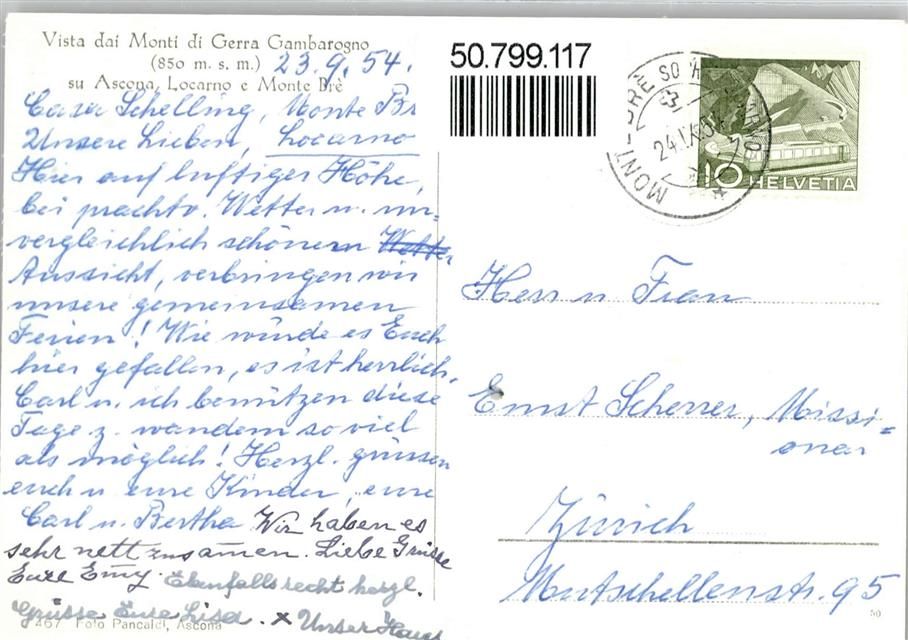 Vista dai Monti di Gerra Gambarogno
(850 m. s. m.) 23.9.54.
su Ascona, Locarno e Monte Brè
Casa Schelling, Monte Br
Unsere Lieben, Locarno
Hier auf luftiger Höhe,
bei prachtv. Wetter u. un-
vergleichlich schönem Wetter
Aussicht, verbringen wir
unsere gemeinsamen
Ferien! Wie würde es Euch
hier gefallen, es ist herrlich.
Carl u. ich benützen diese
Tage z. wandern so viel
als möglich! Herzl. grüssen
euch u eure Kinder, eure
Carl u. Bertha Wir haben es
sehr nett zusamen. Liebe Grüsse
Eure Emy. Ebenfalls recht herzl.
Grüsse Eure Lisa. x Unser Haus
467 Foto Pancaldi, Ascona
50.799.117
24.IX.54
10 HELVETIA
Herr u Frau
Ernst Scherrer, Missi=
onar
Zürich
Mutschellenstr. 95
50